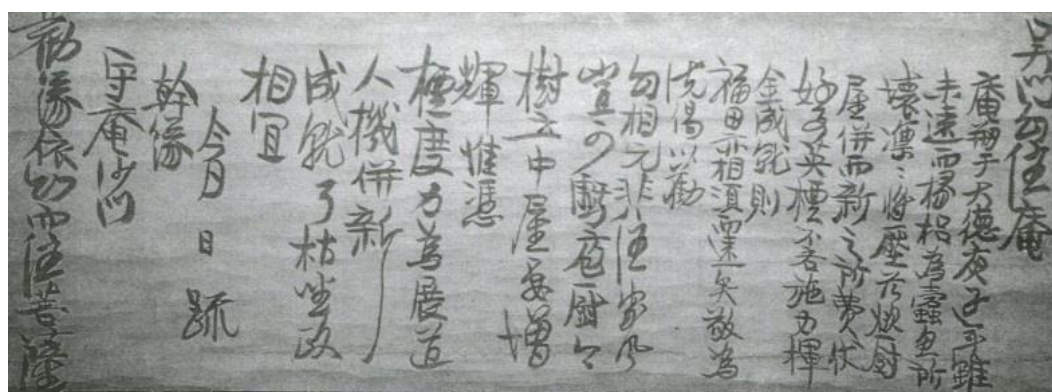 吳門幻住庵
庵剏于大德庚子年雖
未遠而椽梠為蠹魚所
壞凜〻將壓於炊厨
屋併而新之所費仗
好事英檀不吝施力揮
金成就則
福田相須而至矣敬為
說偈以勸
幻相元非住家風
豈可虧庖厨今
樹立中屋要增
輝惟憑
檀度力為展道
人機併新
成就了枯坐政
相宜
今月 日 疏
幹緣
守庵沙門
勸緣依幻而住菩薩